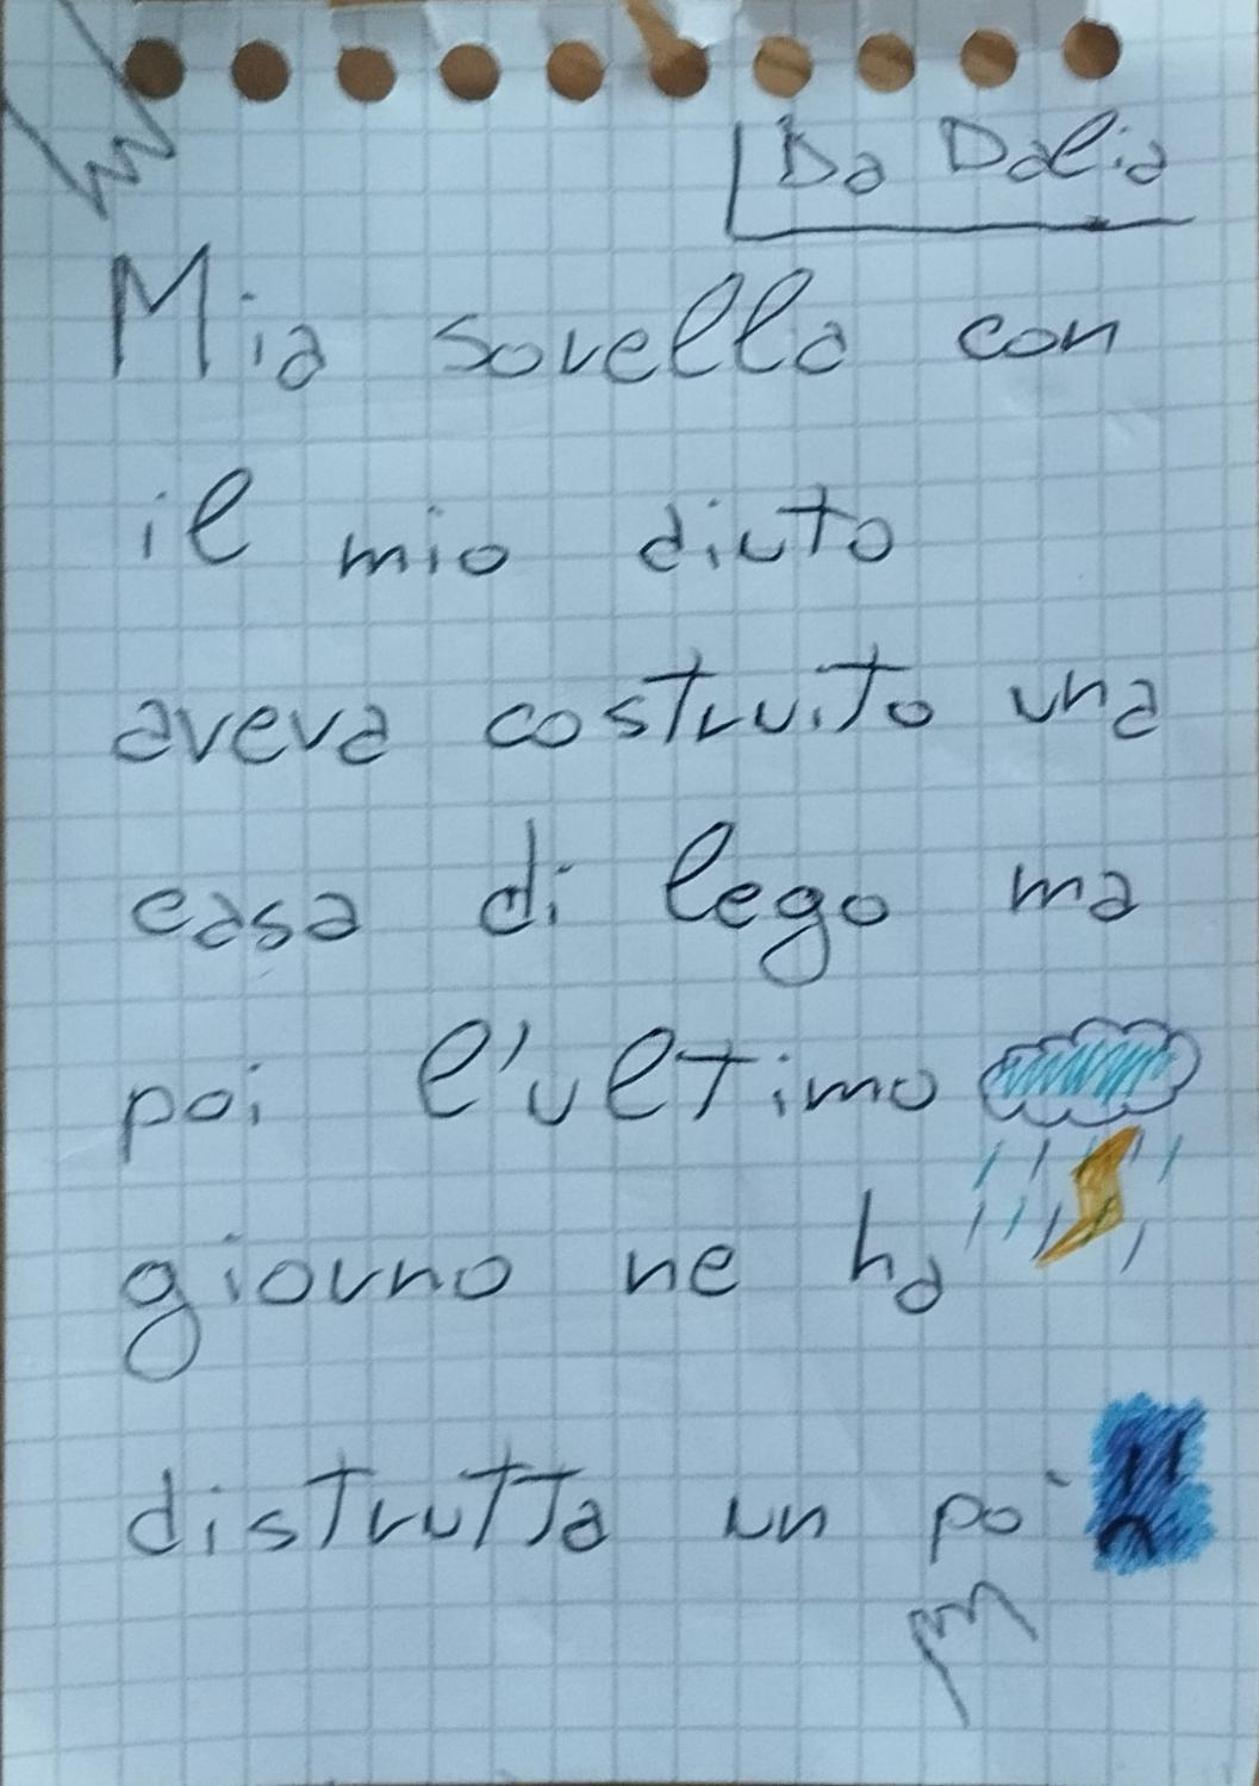 Da Dalia
Mia sorella con
il mio aiuto
aveva costruito una
casa di lego ma
poi l'ultimo
giorno ne ha
distrutta un po'